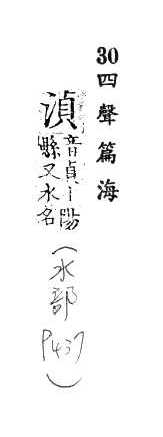 30四聲篇海
湞音貞丨陽
縣又水名
（水部
P437）